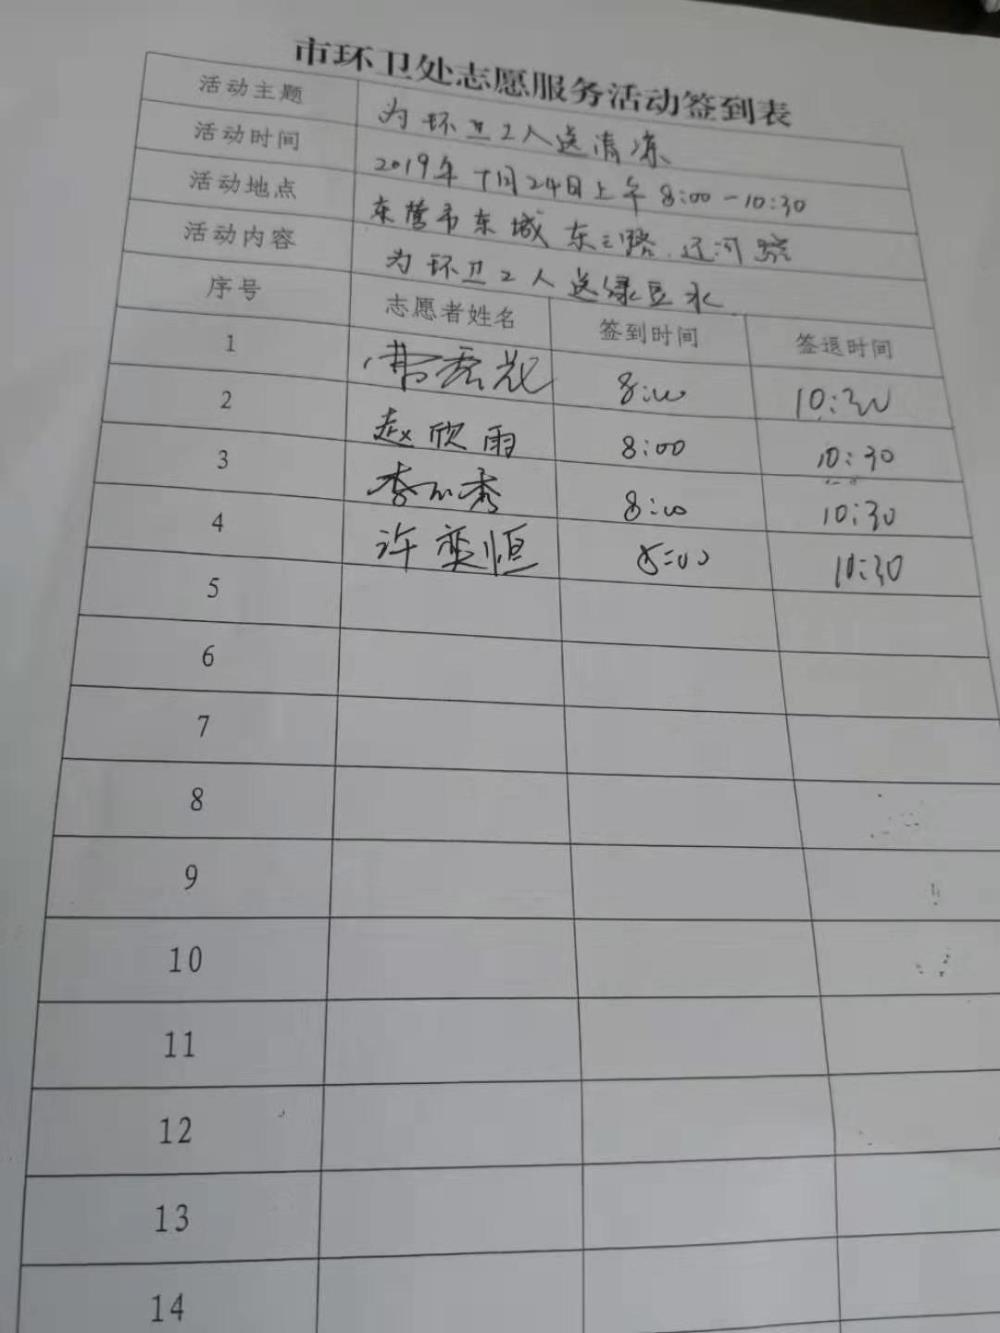 市环卫处志愿服务活动签到表
活动主题 为环卫工人送清凉
活动时间 2019年7月24日上午8:00-10:30
活动地点 东营市东城东三路、辽河路
活动内容 为环卫工人送绿豆水
序号 志愿者姓名 签到时间 签退时间
1 8:00 10:30
2 赵欣雨 8:00 10:30
3 李 秀 8:00 10:30
4 许奕恒 8:00 10:30
5
6
7
8
9
10
11
12
13
14